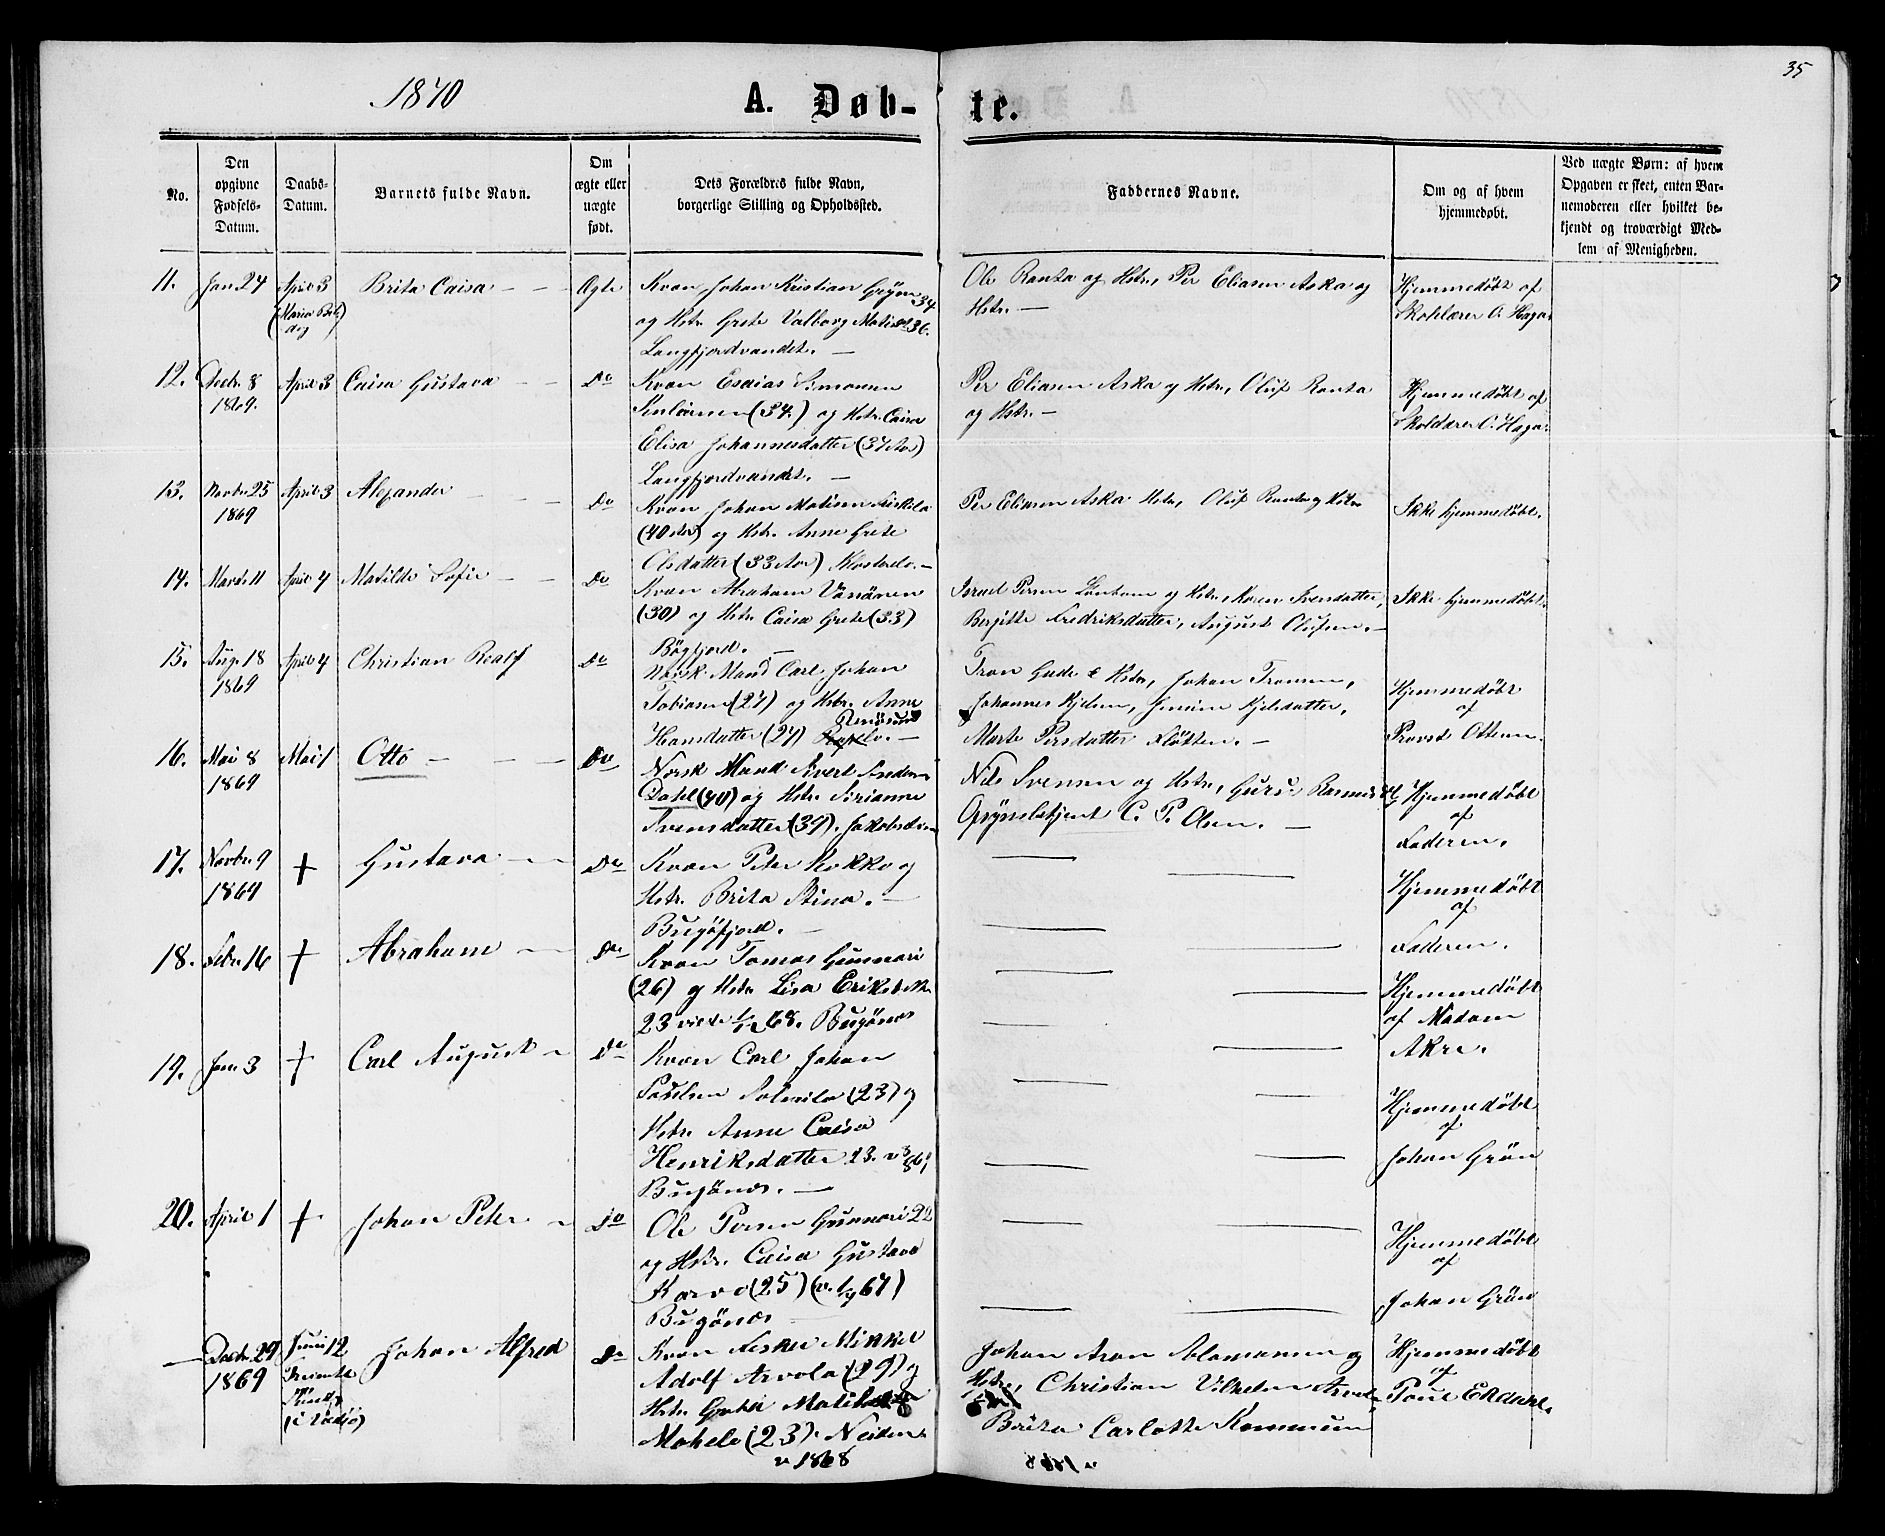 35
1870
A. Døb-te.
No.
Den opgivne Fødsels-Datum.
Daabs-Datum.
Barnets fulde Navn.
Om ægte eller uægte født.
Dets Forældres fulde Navn, borgerlige Stilling og Opholdssted.
Faddernes Navne.
Om og af hvem hjemmedøbt.
Ved uægte Børn: af hvem Opgaven er skeet, enten Bar-nemoderen eller hvilket be-kjendt og troværdigt Med-lem af Menigheden.
11. Jan 24 April 3 Brita Caisa — — Ægte
Kvæn Johan Kristian Grym 34
og Hstr. Grete Valborg 36.
Langfjordvandet. —
Ole Ranta og Hstr, Per Eliasen Aska og
Hstr. —
Hjemmedøbt af
Skolelærer O. Haga.
12. Decbr. 8 1869. April 3 Caisa Gustava — — Do
Kvæn Esaias Simonsen
(34.) og Hstr. Caisa
Elisa Johannesdatter (37 Aar)
Langfjordvandet. —
Per Eliasen Aska og Hstr, Oluf Ranta
og Hstr. —
Hjemmedøbt af
Skolelærer O. Haga.
13. Novbr. 25 1869 April 3 Alexander — — — Do
Kvæn Johan Matisen
(40 Aar) og Hstr. Anne Grete
Olsdatter (33 Aar) Klosterelv. —
Per Eliasen Aska Hstr, Oluf Ranta og Hstr
Ikke hjemmedøbt.
14. Marts 11 April 4 Matilde Sofie — — Do
Kvæn Abraham Vänänen
(30) og Hstr Caisa Grete (33)
Bøgfjord. —
Israel Persen og Hstr, Karen Svensdatter,
Berjitte Fredriksdatter, August Olufsen. —
Ikke hjemmedøbt.
15. Aug. 18 1869 April 4 Christian Realf Do
Norsk Mand Carl Johan
Tobiasen (27) og Hstr. Anne
Hansdatter (24)
Tron Gade & Hstr, Johan Tronsen,
Johannes Kjelsen, Kjelsdatter,
Marte Persdatter Fløtten. —
Hjemmedøbt
af
Provst Ottesen.
16. Mai 8 1869 Mai 1 Otto — — — Do
Norsk Mand Sivert
Dahl (40) og Hstr Sirianne
Svensdatter (39). Jakobselven
Nils Svensen og Hstr,
Opsynsbetjent C. P. Olsen. —
Hjemmedøbt
af
Faderen.
17. Novbr. 9 1869 + Gustava — — Do
Kvæn Peter Kokko og
Hstr. Brita Stina. —
Bugøfjord. —
Hjemmedøbt
af
Faderen.
18. Febr. 16 + Abraham — Do
Kvæn Tomas Gunnari
(26) og Hstr Lisa
23 68. Bugønæs
Hjemmedøbt
af Madam
Akre.
19. Jan. 3 + Carl August — Do
Kvæn Carl Johan
(23) og
Hstr. Anne Caisa
Henriksdatter 23.
Bugønæs. —
Hjemmedøbt
af
Johan Grøn
20. April 1 + Johan Peter — Do
Ole Persen Gunnari 22
og Hstr. Caisa Gustava
Karvo (25) 67)
Bugønæs
Hjemmedøbt
af
Johan Grøn
— Decbr. 29 1869 Juni 12 Johan Alfred Do
Kvæn Fisker Mikkel
Adolf Arvola (29) og
Hstr. Greta
(23). Neiden.
v 1868
Johan Aron Salamonsen og
Hstr, Christian Vilhelm
Brita Carlotte
Hjemmedøbt
af
Poul Ekdahl.